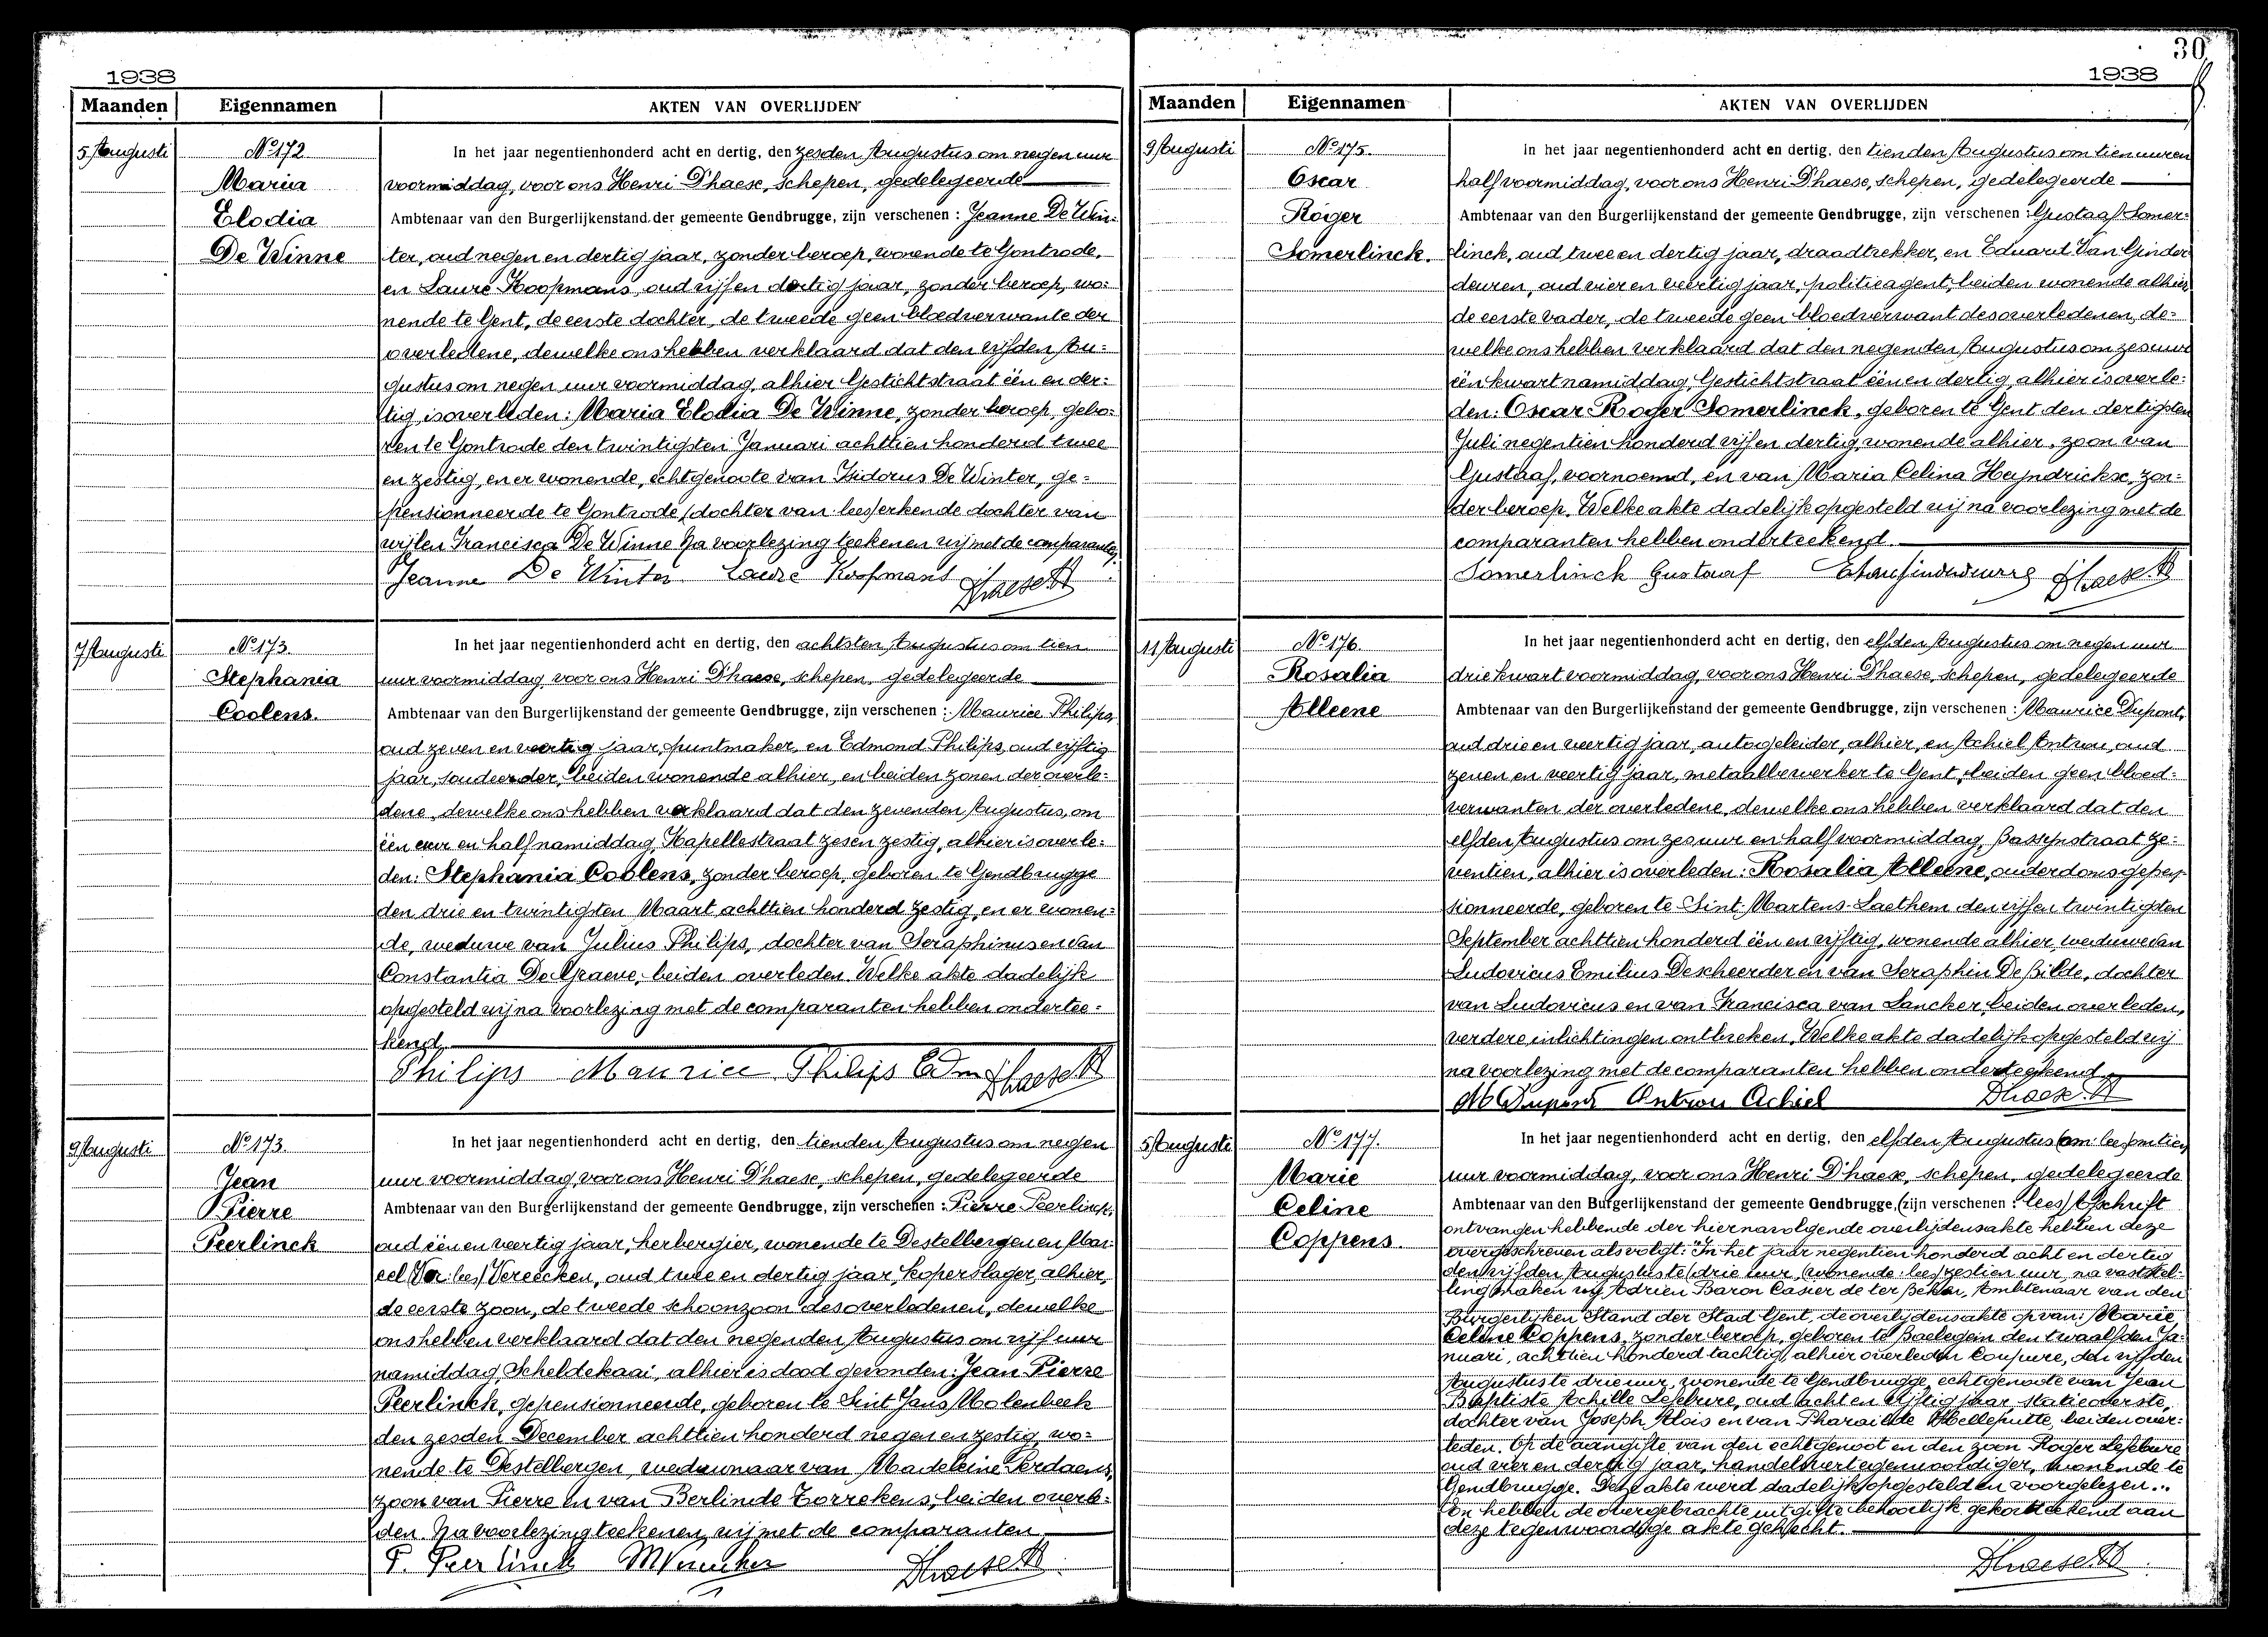 1938
Maanden Eigennamen AKTEN VAN OVERLIJDEN
5 Augusti
No 172
Maria
Elodia
De Winne
In het jaar negentienhonderd acht en dertig, den zesden Augustus om negen uur
voormiddag, voor ons Henri D'haese, schepen, gedelegeerde
Ambtenaar van den Burgerlijkenstand der gemeente Gendbrugge, zijn verschenen : Jeanne De Win=
ter, oud negen en dertig jaar, zonder beroep, wonende te Gontrode,
en Laure Koopmans, oud vijf en dertig jaar, zonder beroep, wo=
nende te Gent, de eerste dochter, de tweede geen bloedverwante der
overledene, dewelke ons hebben verklaard dat den vijfden Au=
gustus om negen uur voormiddag, alhier Gestichtstraat één en der=
tig, is overleden: Maria Elodia De Winne, zonder beroep, gebo=
ren te Gontrode den twintigsten Januari achttien honderd twee
en zestig, en er wonende, echtgenoote van Isidorus De Winter, ge=
pensionneerde te Gontrode (dochter van lees) erkende dochter van
wijlen Francisca De Winne Na voorlezing teekenen wij met de comparanten,
Jeanne De Winter Laure Koopmans D'haese H
7 Augusti
No 173
Stephania
Coolens.
In het jaar negentienhonderd acht en dertig, den achtsten Augustus om tien
uur voormiddag, voor ons Henri D'haese, schepen, gedelegeerde
Ambtenaar van den Burgerlijkenstand der gemeente Gendbrugge, zijn verschenen : Maurice Philips,
oud zeven en veertig jaar, puntmaker, en Edmond Philips, oud vijftig
jaar, soudeerder, beiden wonende alhier, en beiden zonen der overle=
dene, dewelke ons hebben verklaard dat den zevenden Augustus, om
één uur en half namiddag, Kapellestraat zes en zestig, alhier is overle=
den: Stephania Coolens, zonder beroep, geboren te Gendbrugge
den drie en twintigsten Maart achttien honderd zestig, en er wonen=
de, weduwe van Julius Philips, dochter van Seraphinus en van
Constantia De Graeve, beiden overleden. Welke akte dadelijk
opgesteld wij na voorlezing met de comparanten hebben ondertee=
kend.
Philips Maurice Philips Edm D'haese H
9 Augusti
No 173.
Jean
Pierre
Peerlinck
In het jaar negentienhonderd acht en dertig, den tienden Augustus om negen
uur voormiddag, voor ons Henri D'haese, schepen, gedelegeerde
Ambtenaar van den Burgerlijkenstand der gemeente Gendbrugge, zijn verschenen : Pierre Peerlinck,
oud één en veertig jaar, herbergier, wonende te Destelbergen en Mar=
cel (Ver: lees) Vereecken, oud twee en dertig jaar, koperslager, alhier,
de eerste zoon, de tweede schoonzoon des overledenen, dewelke
ons hebben verklaard dat den negenden Augustus om vijf uur
namiddag, Scheldekaai, alhier is dood gevonden: Jean Pierre
Peerlinck, gepensionneerde, geboren te Sint Jans Molenbeek
den zesden December achttien honderd negen en zestig, wo=
nende te Destelbergen, weduwnaar van Madeleine Perdaens,
zoon van Pierre en van Berlinde Torrekens, beiden overle=
den. Na voorlezing teekenen wij met de comparanten
P. Peerlinck M Vereecken D'haese H
30
1938
Maanden Eigennamen AKTEN VAN OVERLIJDEN
9 Augusti
No 175.
Oscar
Roger
Somerlinck.
In het jaar negentienhonderd acht en dertig, den tienden Augustus om tien uren
half voormiddag, voor ons Henri D'haese, schepen, gedelegeerde
Ambtenaar van den Burgerlijkenstand der gemeente Gendbrugge, zijn verschenen : Gustaaf Somer=
linck, oud twee en dertig jaar, draadtrekker, en Eduard Van Ginder
deuren, oud vier en veertig jaar, politieagent, beiden wonende alhier,
de eerste vader, de tweede geen bloedverwant des overledenen, de=
welke ons hebben verklaard dat den negenden Augustus om zes uur
één kwart namiddag, Gestichtstraat één en dertig, alhier is overle=
den: Oscar Roger Somerlinck, geboren te Gent den dertigsten
Juli negentien honderd vijf en dertig, wonende alhier, zoon van
Gustaaf, voornoemd, en van Maria Celina Heyndrickx, zon=
der beroep. Welke akte dadelijk opgesteld wij na voorlezing met de
comparanten hebben onderteekend.
Somerlinck Gustaaf D'haese H
11 Augusti
No 176.
Rosalia
Alleene
In het jaar negentienhonderd acht en dertig, den elfden Augustus om negen uur
drie kwart voormiddag, voor ons Henri D'haese, schepen, gedelegeerde
Ambtenaar van den Burgerlijkenstand der gemeente Gendbrugge, zijn verschenen : Maurice Dupont,
oud drie en veertig jaar, autogeleider, alhier, en Achiel Antrou, oud
zeven en veertig jaar, metaalbewerker te Gent, beiden geen bloed=
verwanten der overledene, dewelke ons hebben verklaard dat den
elfden Augustus om zes uur en half voormiddag, Bassijnstraat ze=
ventien, alhier is overleden: Rosalia Alleene, ouderdomsgepen=
sionneerde, geboren te Sint-Martens-Laethem den vijf en twintigsten
September achttien honderd één en vijftig, wonende alhier, weduwe van
Ludovicus Emilius Descheerder en van Seraphin De Bilde, dochter
van Ludovicus en van Francisca van Lancker, beiden overleden,
verdere inlichtingen ontbreken. Welke akte dadelijk opgesteld wij
na voorlezing met de comparanten hebben onderteekend.
M Dupont Antrou Achiel D'haese H
5 Augusti
No 177.
Marie
Celine
Coppens.
In het jaar negentienhonderd acht en dertig, den elfden Augustus (om: lees) om tien
uur voormiddag, voor ons Henri D'haese, schepen, gedelegeerde
Ambtenaar van den Burgerlijkenstand der gemeente Gendbrugge, (zijn verschenen : lees) Afschrift
ontvangen hebbende der hiernavolgende overlijdensakte hebben deze
overgeschreven als volgt: "In het jaar negentien honderd acht en dertig
den vijfden Augustus te (drie uur, wonende: lees) zestien uur, na vaststel=
ling maken wij Adrien Baron Casier de ter Beken, Ambtenaar van den
Burgerlijken Stand der Stad Gent, de overlijdensakte op van: Marie
Celine Coppens, zonder beroep, geboren te Baelegem den twaalfden Ja=
nuari, achttien honderd tachtig, alhier overleden Coupure, den vijfden
Augustus te drie uur, wonende te Gendbrugge, echtgenoote van Jean
Baptiste Achille Lefebure, oud acht en vijftig jaar, statieoverste,
dochter van Joseph Alois en van Pharaïlde Helleputte, beiden over=
leden. Op de aangifte van den echtgenoot en den zoon Roger Lefebure
oud vier en dertig jaar, handelsvertegenwoordiger, wonende te
Gendbrugge. Deze akte werd dadelijk opgesteld en voorgelezen...
En hebben de overgebrachte uitgifte behoorlijk gekortteekend aan
deze tegenwoordige akte gehecht.
D'haese H